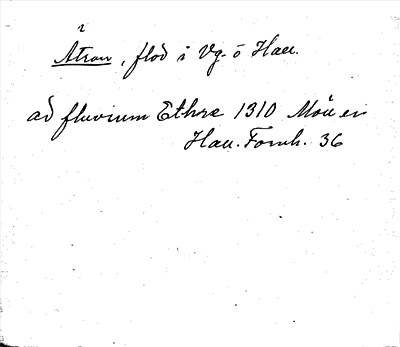 Ätran, flod i Vg. o Hall.
ad fluvium Ethre 1310
Hall. Fornh. 36